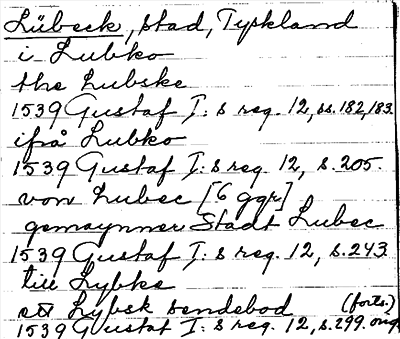 Lübeck, stad, Tyskland
i Lubko
the Lubske
1539 Gustaf I:s reg. 12, ss. 182, 183.
ifrå Lubko
1539 Gustaf I:s reg. 12, s. 205.
von Lubec [6 ggr]
gemaynner Stadt Lubec
1539 Gustaf I:s reg. 12, s. 243
till Lybke
ett Lybsk sendebod (forts.)
1539 Gustaf I:s reg. 12, s. 299. orig